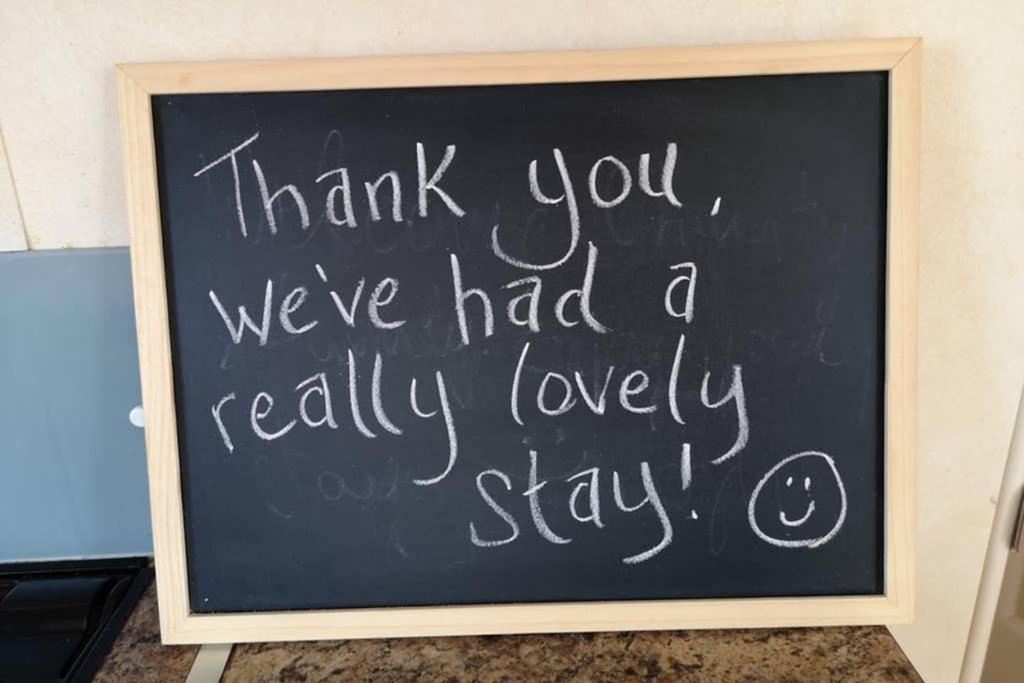 Thank you,
we've had a
really lovely
stay!